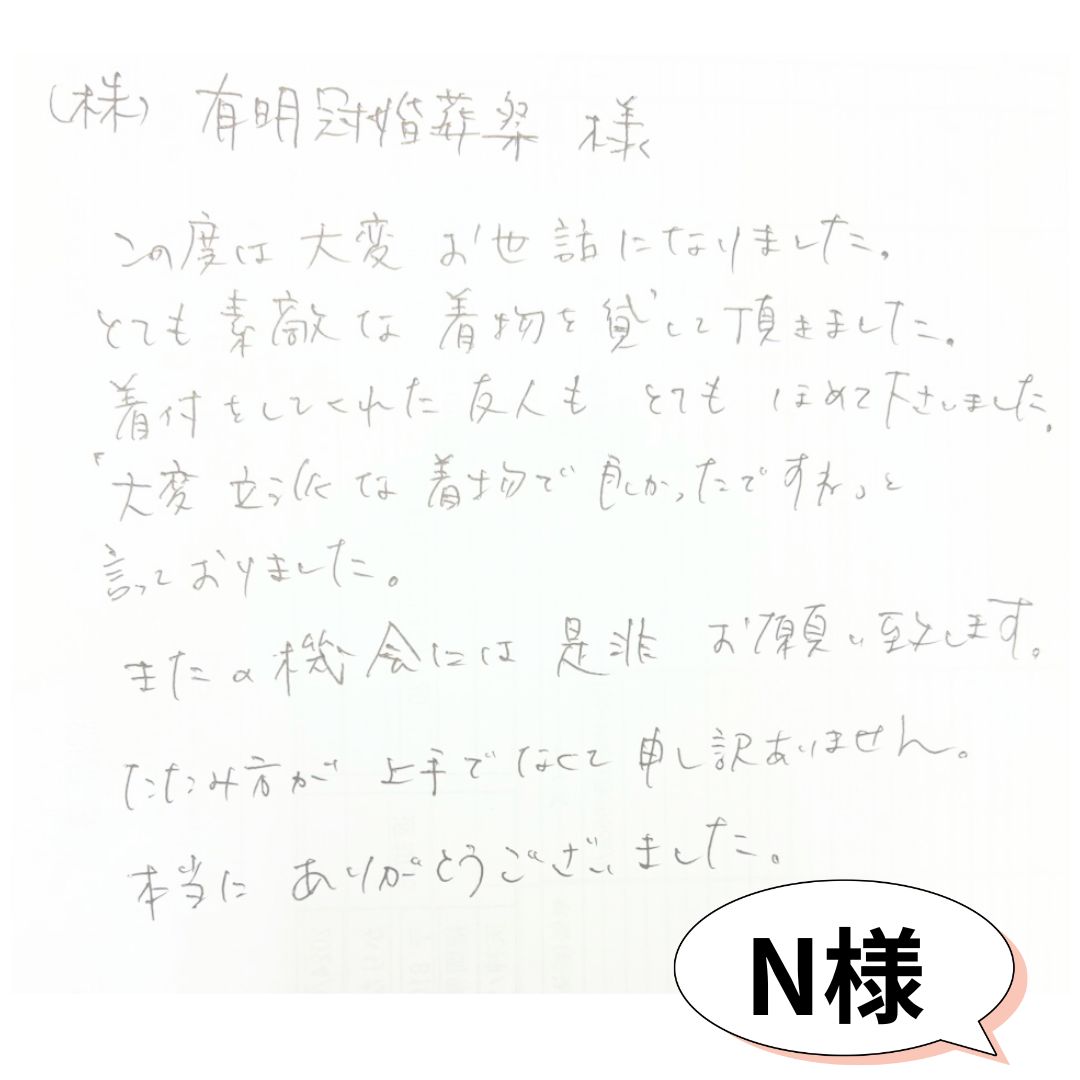 (株) 有明冠婚葬祭 様
この度は大変お世話になりました。
とても素敵な着物を貸して頂きました。
着付をしてくれた友人もとてもほめて下さいました。
「大変立派な着物で良かったですね」と
言っておりました。
またの機会には是非お願い致します。
たたみ方が上手でなくて申し訳ありません。
本当にありがとうございました。
N様